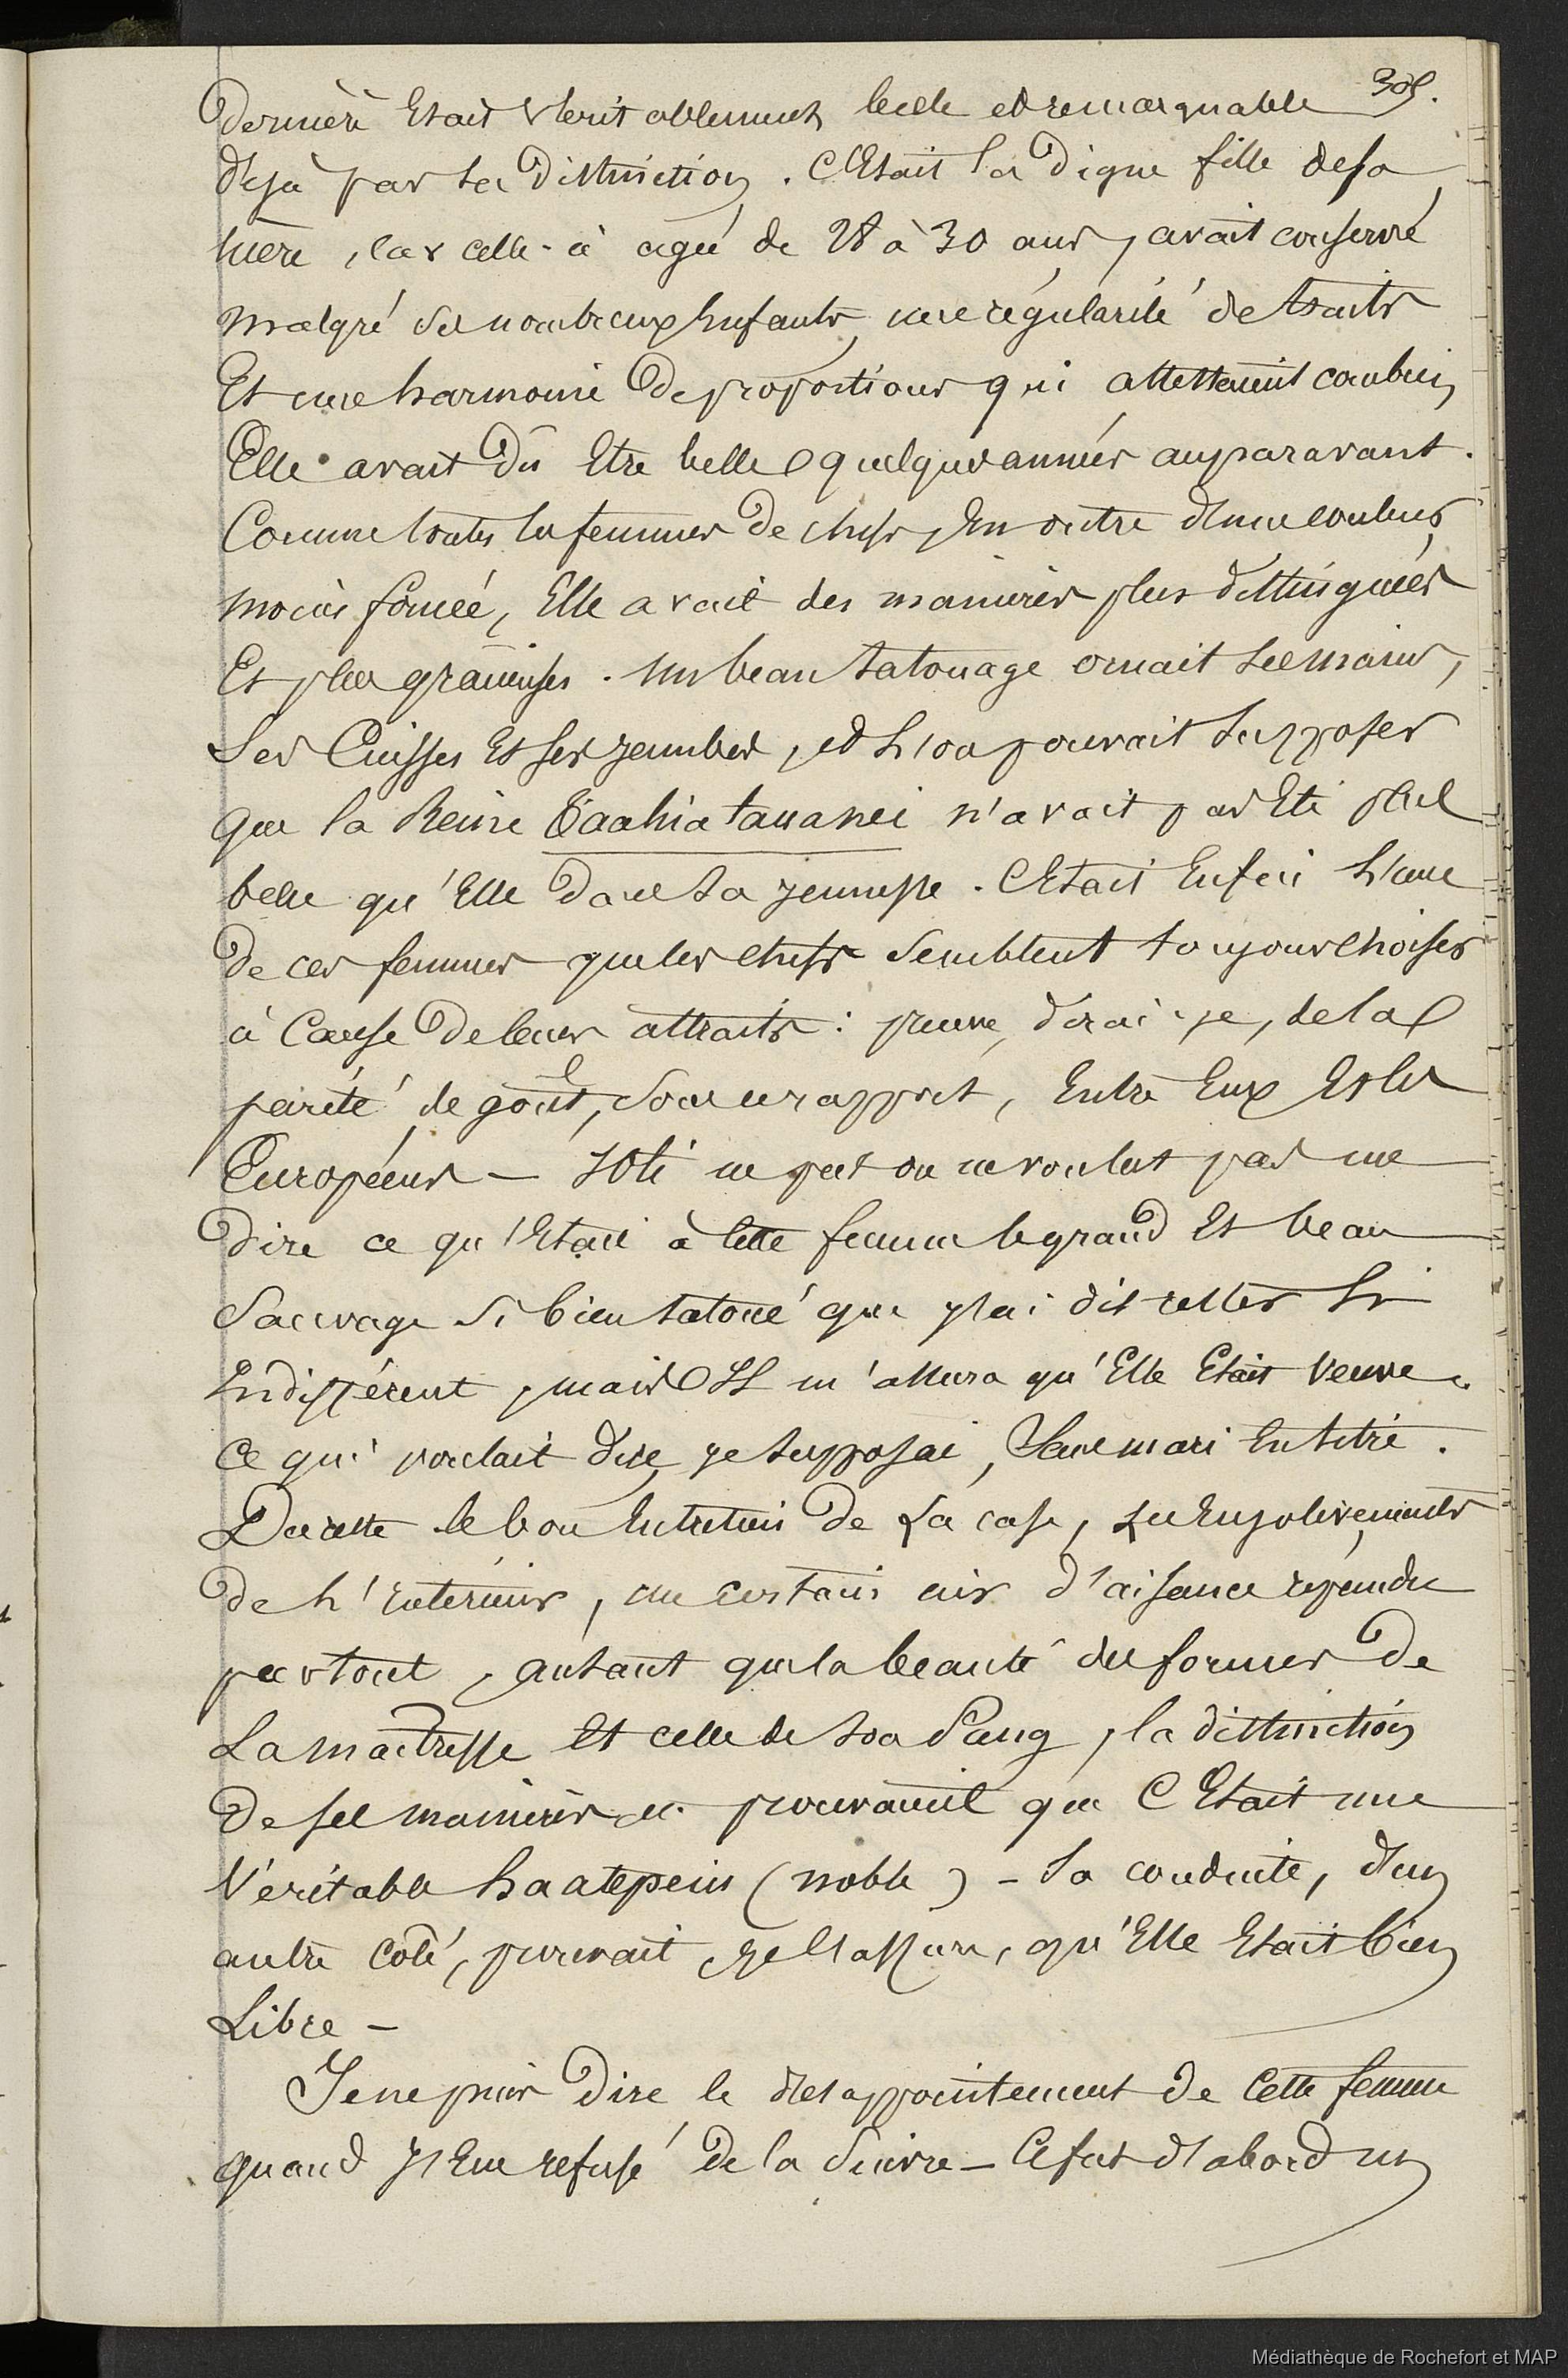 305.
dernière Etait véritablement belle et remarquable
déjà par sa distinction. C'Etait la digne fille de sa
mère, car celle-ci agée de 28 à 30 ans, avait conservé
malgré de nombreux Enfants, une régularité de traits
Et une harmonie de proportions qui attestaient combien
Elle avait dû Etre belle quelques années auparavant.
Comme toutes les femmes de chefs, En outre d'une couleur
moins foncée, Elle avait des manières plus distinguées
Et plus gracieuses. Un beau tatouage ornait ses mains,
Ses Cuisses Et ses jambes, et l'on pouvait supposer
que la Reine Vaahiatauanei n'avait pas Eté plus
belle qu'Elle dans sa jeunesse. C'Etait Enfin l'une
de ces femmes que les chefs semblent toujours choisir
à Cause de leurs attraits : preuve, dirai-je, de la
parité de goût, sous ce rapport, Entre Eux Et les
Européens — ne put ou ne voulut pas me
dire ce qu'Etait à cette femme le grand Et beau
Sauvage si bien tatoué que j'ai dit rester si
Indifférent, mais Il m'assura qu'Elle Etait veuve.
Ce qui voulait dire, je supposai, sans mari En titre.
Du reste le bon Entretien de La case, Les Enjolivements
de l'Intérieur, un certain air d'aisance répandu
partout, autant que la beauté des formes de
La maitresse Et celle de son Sang, la distinction
de ses manières prouvaient que C'Etait une
Véritable haatepeiu (noble) — Sa conduite, d'un
autre côté, prouvait, je l'assure, qu'Elle Etait bien
Libre —
Je ne puis dire le désappointement de Cette femme
quand j'Eus refusé de la Suivre — Ce fut d'abord un
Médiathèque de Rochefort et MAP